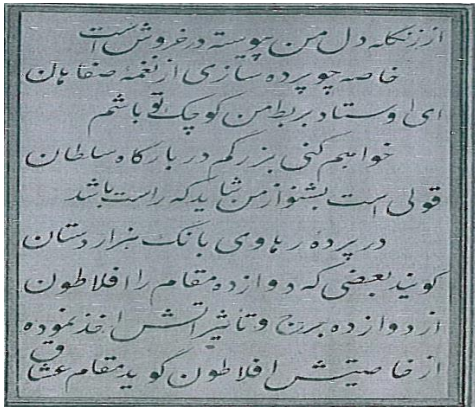 از زنکله دل من پیوسته در خروش است
خاصه چو پرده سازی از نغمهٔ صفاهان
ای اوستاد بربط من کوچک تو باشم
خواهم کنی بزرکم در بارکاه سلطان
قولی است بشنو از من شاید که راست باشد
در پرده رهاوی بانک هزار دستان
کویند بعضی که دوازده مقام را افلاطون
از دوازده برج و تأثیراتش اخذ نموده
از خاصیتش افلاطون گوید مقام عشاق